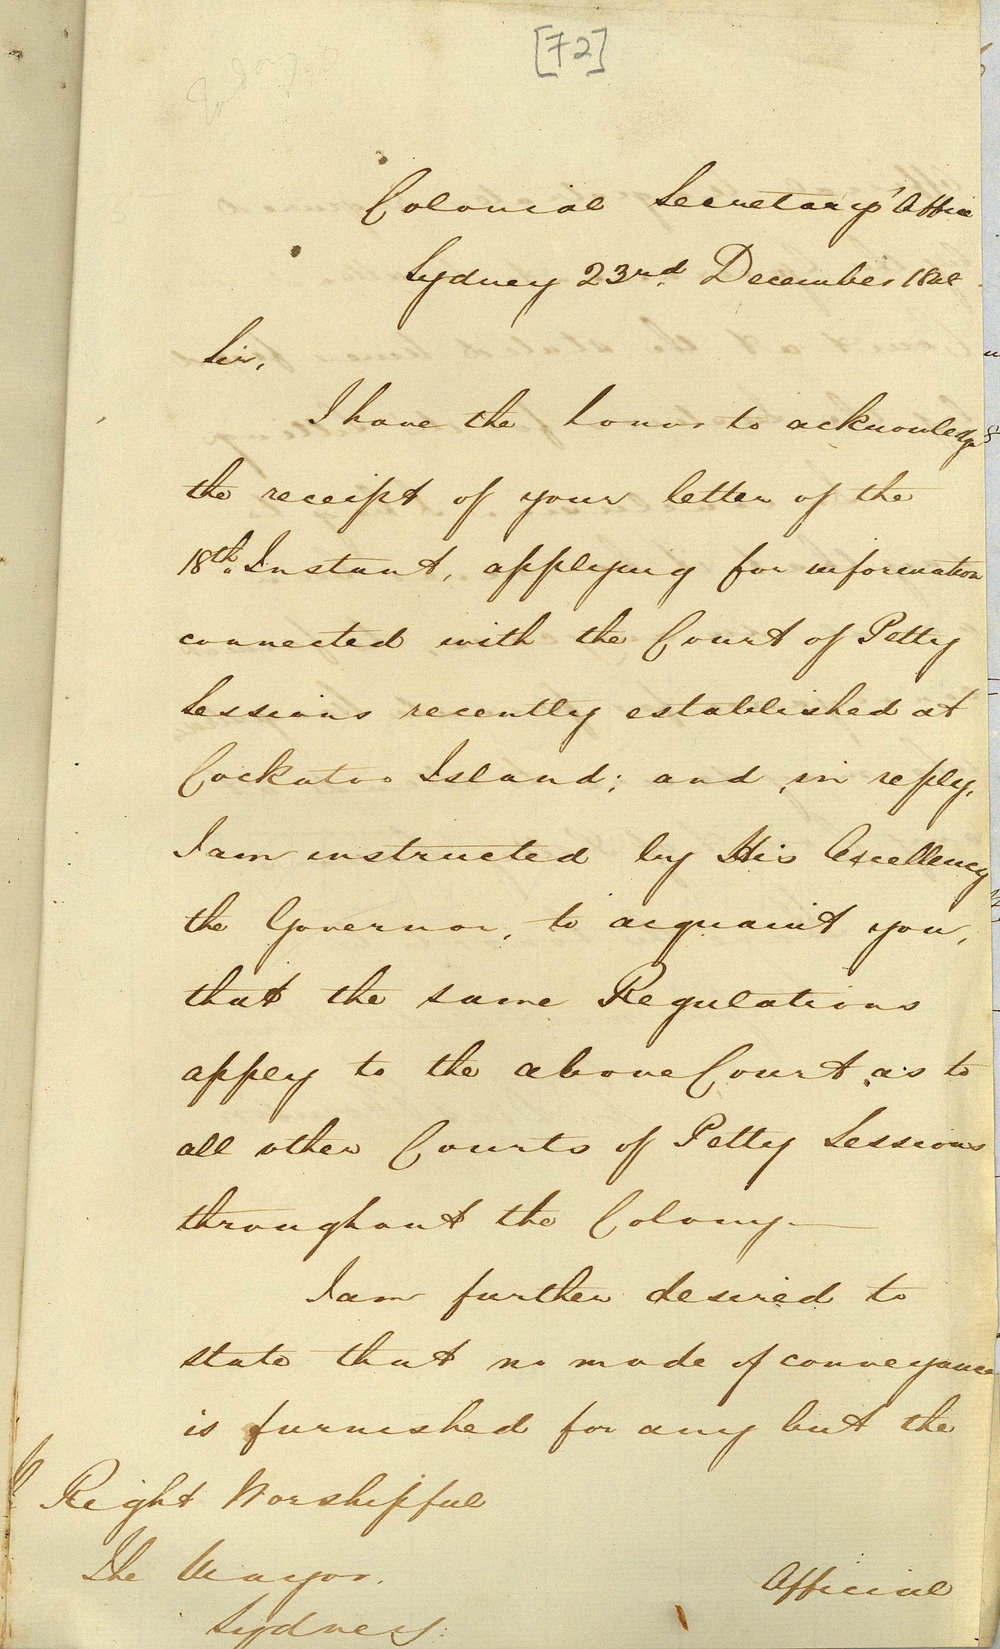 [72]
Colonial Secretary's Office
Sydney 23rd. December
Sir,
I have the honor to acknowledge
the receipt of your letter of the
18th. Instant, applying for information
connected with the Court of Petty
Sessions recently established at
Cockatoo Island; and, in reply,
I am instructed by His Excellency
the Governor, to acquaint you,
that the same Regulations
apply to the above Court as to
all other Courts of Petty Sessions
throughout the Colony.—
I am further desired to
state that no mode of conveyance
is furnished for any but the
Right Worshipful
The Mayor.
Sydney.
Official